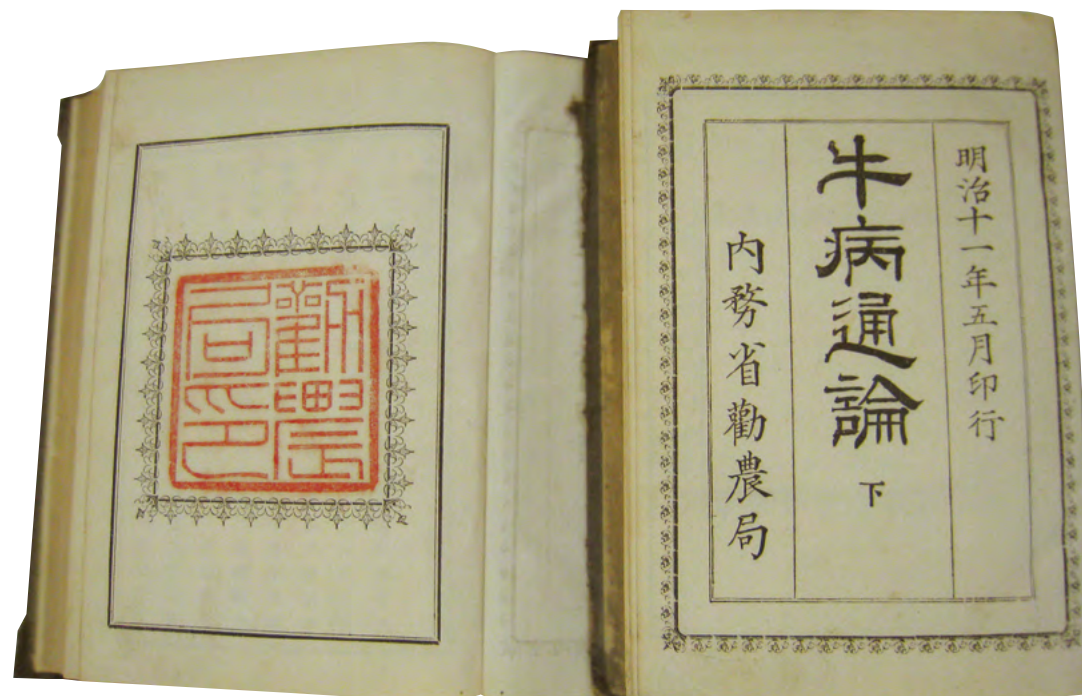 明治十一年五月印行
牛病通論 下
内務省勸農局
勸農
局印